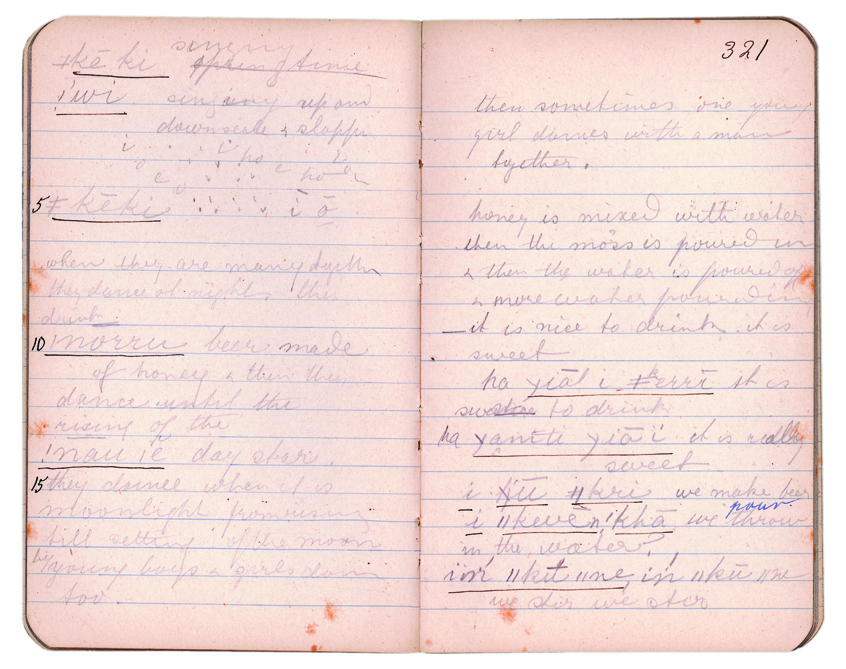 singing
ǂkē ki springtime
!'uvi singing up and
downscale & slopp
i i ho
o e ho
5 ǂkēki ī ō
when they are many
they dance at night. the
drink
10 !norru beer made
of honey & then
dance until the
rising of the
!nau ie day star.
15 they dance when it is
moonlight from rising
till setting of the moon
young boys & girls dance
too.
321
then sometimes one young
girl dances with a man
together.
honey is mixed with water
then the moss is poured in
& then the water is poured off
& more water poured in
— it is nice to drink. it is
sweet
ha yīāl i ǂkerrī it is
to drink
ha yantti yīāï it is really
sweet
i ǁkri we make beer
pour
i ǁkevēn'khā we throw
in the water.
in ǁkū ǁne, in ǁkū ǁne
we stir we stir